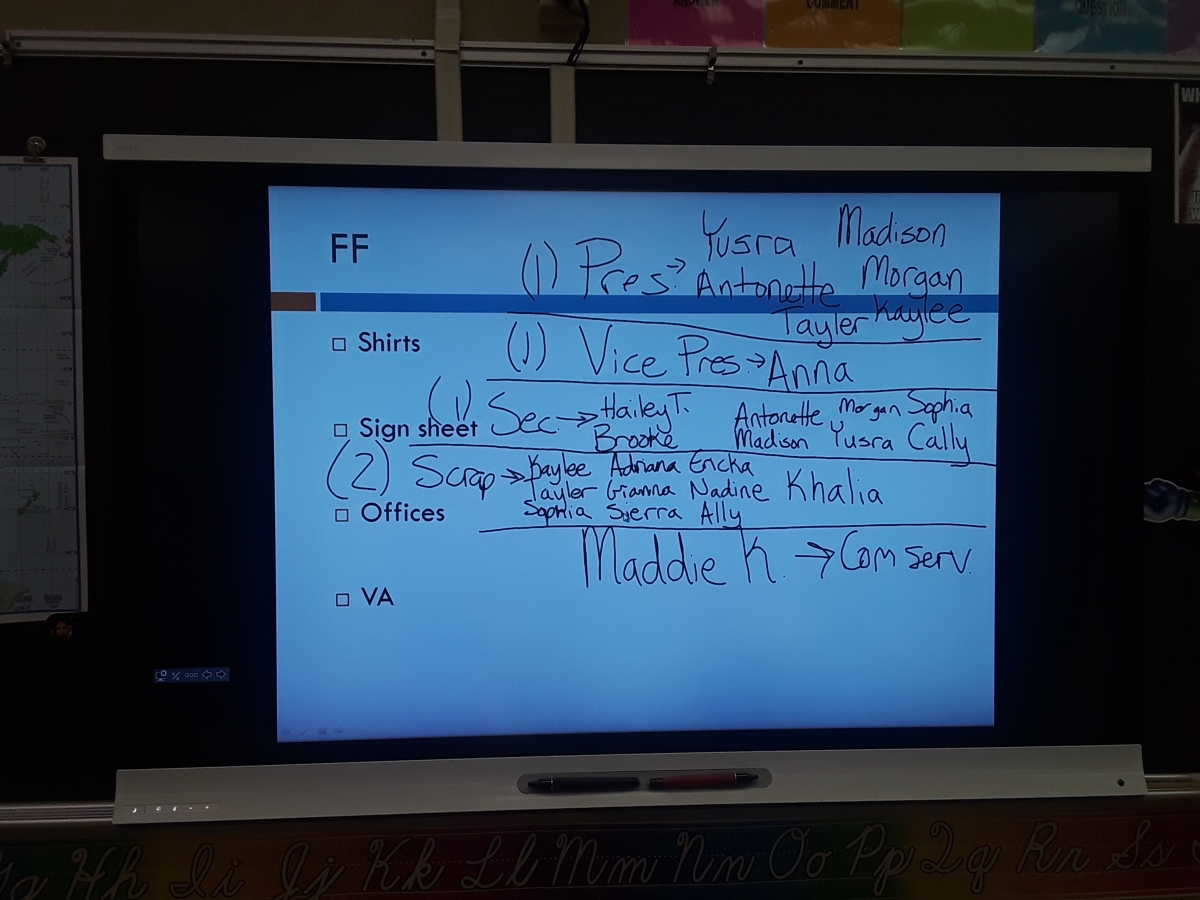 ANSWER
COMMENT
QUESTION
FF
(1) Pres. → Yusra Madison
Antonette Morgan
Tayler Kaylee
Shirts
(1) Vice Pres. → Anna
Sign sheet
(1) Sec. → Hailey T. Antonette Morgan Sophia
Brooke Madison Yusra Cally
(2) Scrap → Kaylee Adriana Ericka
Tayler Gianna Nadine Khalia
Sophia Sierra Ally
Offices
Maddie K. → Com serv.
VA
Hh Ii Jj Kk Ll Mm Nn Oo Pp Qq Rr Ss